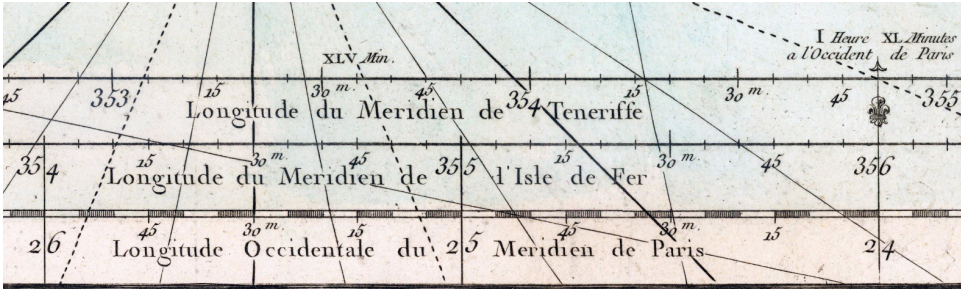 I Heure XL Minutes
a l'Occident de Paris
XLV Min.
45 353 15 30 m. 45 354 15 30 m. 45 355
Longitude du Meridien de Teneriffe
354 15 30 m 45 355 15 30 m 45 356
Longitude du Meridien de l'Isle de Fer
26 45 30 m 15 25 45 30 m 15 24
Longitude Occidentale du Meridien de Paris